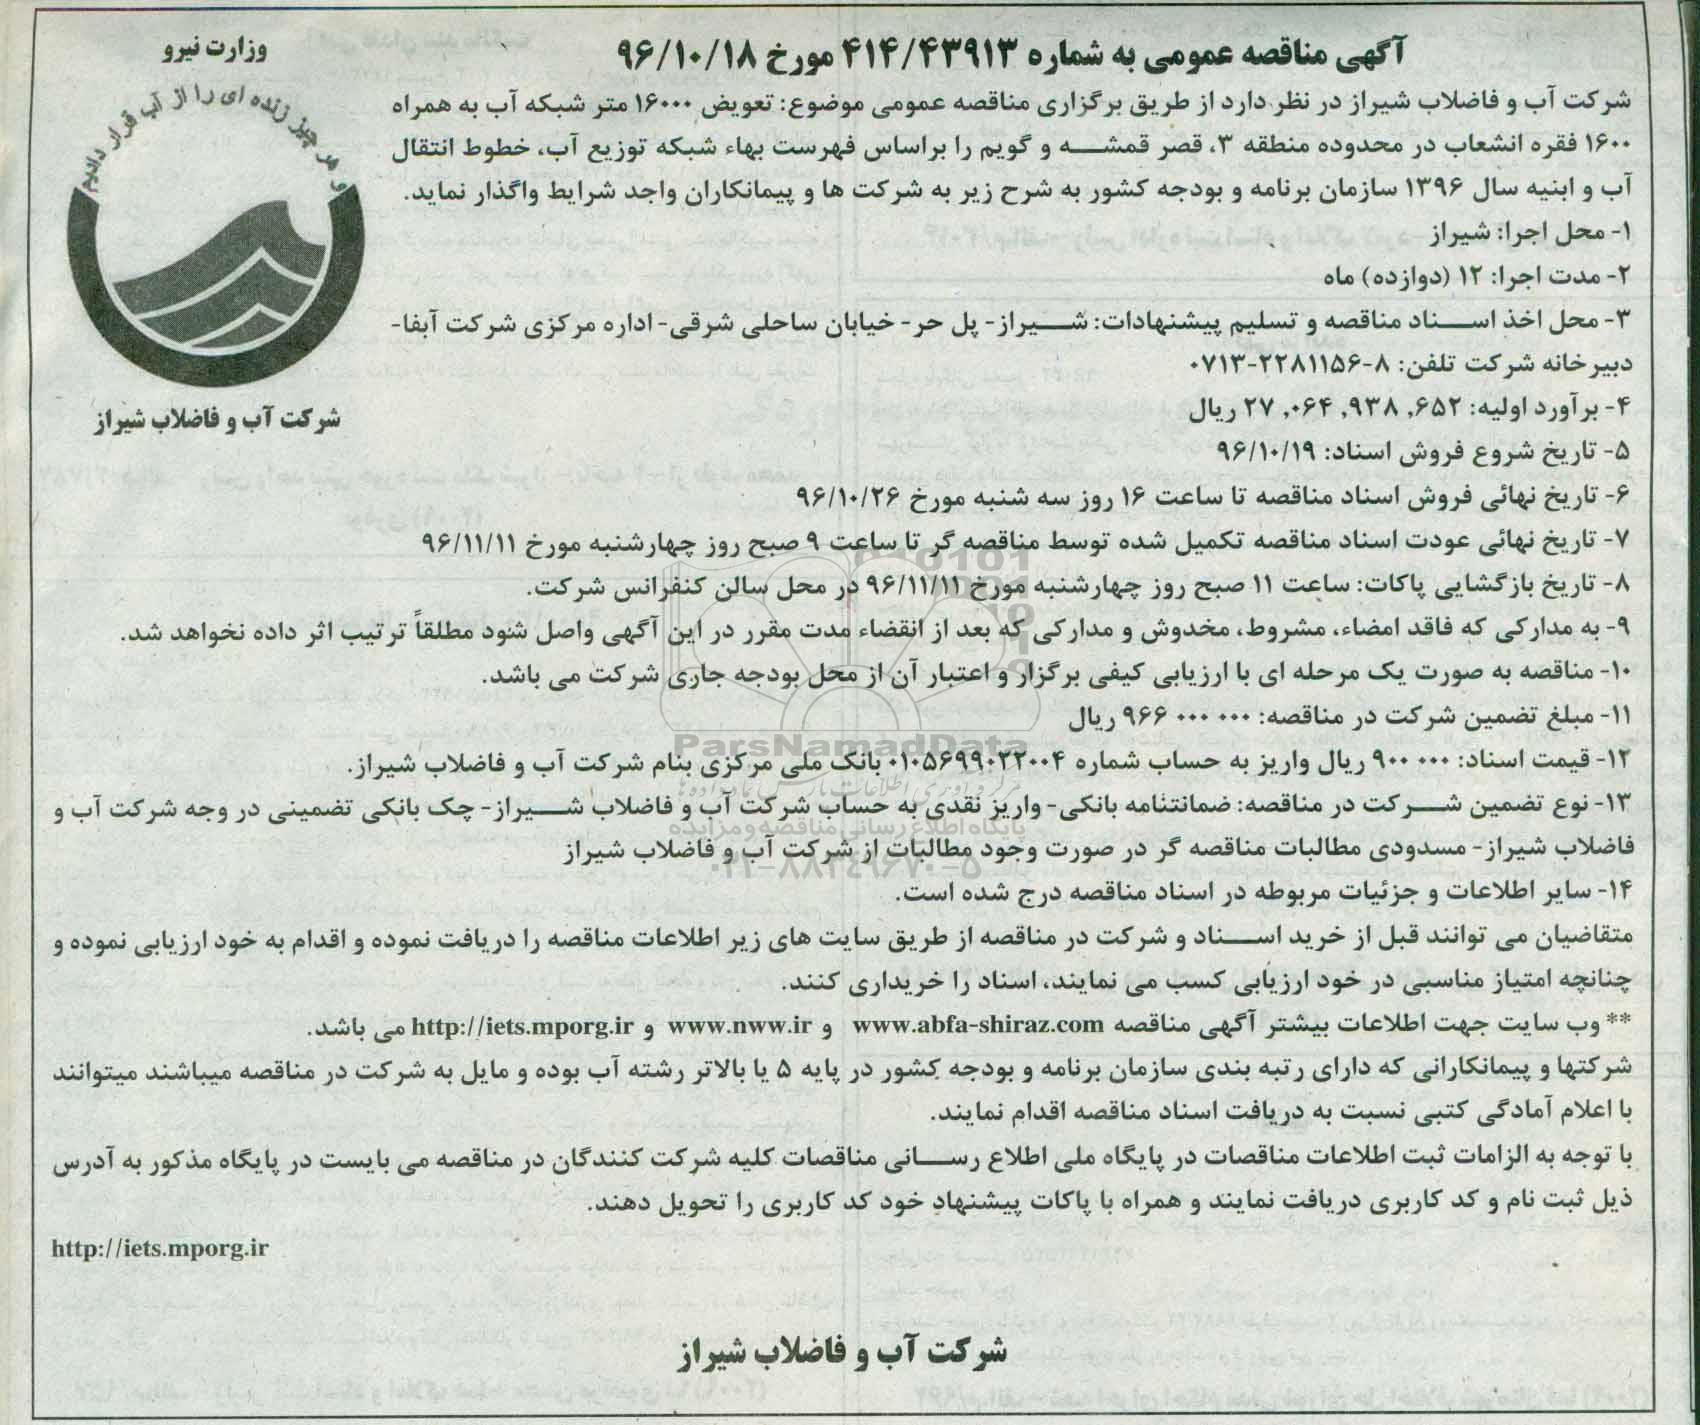 وزارت نیرو
و هر چیز زنده ای را از آب قرار دادیم
شرکت آب و فاضلاب شیراز
آگهی مناقصه عمومی به شماره ۴۱۴/۴۳۹۱۳ مورخ ۹۶/۱۰/۱۸
شرکت آب و فاضلاب شیراز در نظر دارد از طریق برگزاری مناقصه عمومی موضوع: تعویض ۱۶۰۰۰ متر شبکه آب به همراه
۱۶۰۰ فقره انشعاب در محدوده منطقه ۳، قصر قمشه و گویم را براساس فهرست بهاء شبکه توزیع آب، خطوط انتقال
آب و ابنیه سال ۱۳۹۶ سازمان برنامه و بودجه کشور به شرح زیر به شرکت ها و پیمانکاران واجد شرایط واگذار نماید.
۱- محل اجرا: شیراز
۲- مدت اجرا: ۱۲ (دوازده) ماه
۳- محل اخذ اسناد مناقصه و تسلیم پیشنهادات: شیراز- پل حر- خیابان ساحلی شرقی- اداره مرکزی شرکت آبفا-
دبیرخانه شرکت تلفن: ۸-۲۲۸۱۱۵۶-۰۷۱۳
۴- برآورد اولیه: ۲۷,۰۶۴,۹۳۸,۶۵۲ ریال
۵- تاریخ شروع فروش اسناد: ۹۶/۱۰/۱۹
۶- تاریخ نهائی فروش اسناد مناقصه تا ساعت ۱۶ روز سه شنبه مورخ ۹۶/۱۰/۲۶
۷- تاریخ نهائی عودت اسناد مناقصه تکمیل شده توسط مناقصه گر تا ساعت ۹ صبح روز چهارشنبه مورخ ۹۶/۱۱/۱۱
۸- تاریخ بازگشایی پاکات: ساعت ۱۱ صبح روز چهارشنبه مورخ ۹۶/۱۱/۱۱ در محل سالن کنفرانس شرکت.
۹- به مدارکی که فاقد امضاء، مشروط، مخدوش و مدارکی که بعد از انقضاء مدت مقرر در این آگهی واصل شود مطلقاً ترتیب اثر داده نخواهد شد.
۱۰- مناقصه به صورت یک مرحله ای با ارزیابی کیفی برگزار و اعتبار آن از محل بودجه جاری شرکت می باشد.
۱۱- مبلغ تضمین شرکت در مناقصه: ۹۶۶ ۰۰۰ ۰۰۰ ریال
ParsNamadData
۱۲- قیمت اسناد: ۹۰۰ ۰۰۰ ریال واریز به حساب شماره ۰۱۰۵۶۹۹۰۲۲۰۰۴ بانک ملی مرکزی بنام شرکت آب و فاضلاب شیراز.
۱۳- نوع تضمین شرکت در مناقصه: ضمانتنامه بانکی- واریز نقدی به حساب شرکت آب و فاضلاب شیراز- چک بانکی تضمینی در وجه شرکت آب و
پایگاه اطلاع رسانی مناقصه و مزایده
فاضلاب شیراز- مسدودی مطالبات مناقصه گر در صورت وجود مطالبات از شرکت آب و فاضلاب شیراز
۰۲۱-۸۸۳۴۹۶۷۰-۵
۱۴- سایر اطلاعات و جزئیات مربوطه در اسناد مناقصه درج شده است.
متقاضیان می توانند قبل از خرید اسناد و شرکت در مناقصه از طریق سایت های زیر اطلاعات مناقصه را دریافت نموده و اقدام به خود ارزیابی نموده و
چنانچه امتیاز مناسبی در خود ارزیابی کسب می نمایند، اسناد را خریداری کنند.
** وب سایت جهت اطلاعات بیشتر آگهی مناقصه www.abfa-shiraz.com و www.nww.ir و http://iets.mporg.ir می باشد.
شرکتها و پیمانکارانی که دارای رتبه بندی سازمان برنامه و بودجه کشور در پایه ۵ یا بالاتر رشته آب بوده و مایل به شرکت در مناقصه میباشند میتوانند
با اعلام آمادگی کتبی نسبت به دریافت اسناد مناقصه اقدام نمایند.
با توجه به الزامات ثبت اطلاعات مناقصات در پایگاه ملی اطلاع رسانی مناقصات کلیه شرکت کنندگان در مناقصه می بایست در پایگاه مذکور به آدرس
ذیل ثبت نام و کد کاربری دریافت نمایند و همراه با پاکات پیشنهاد خود کد کاربری را تحویل دهند.
http://iets.mporg.ir
شرکت آب و فاضلاب شیراز